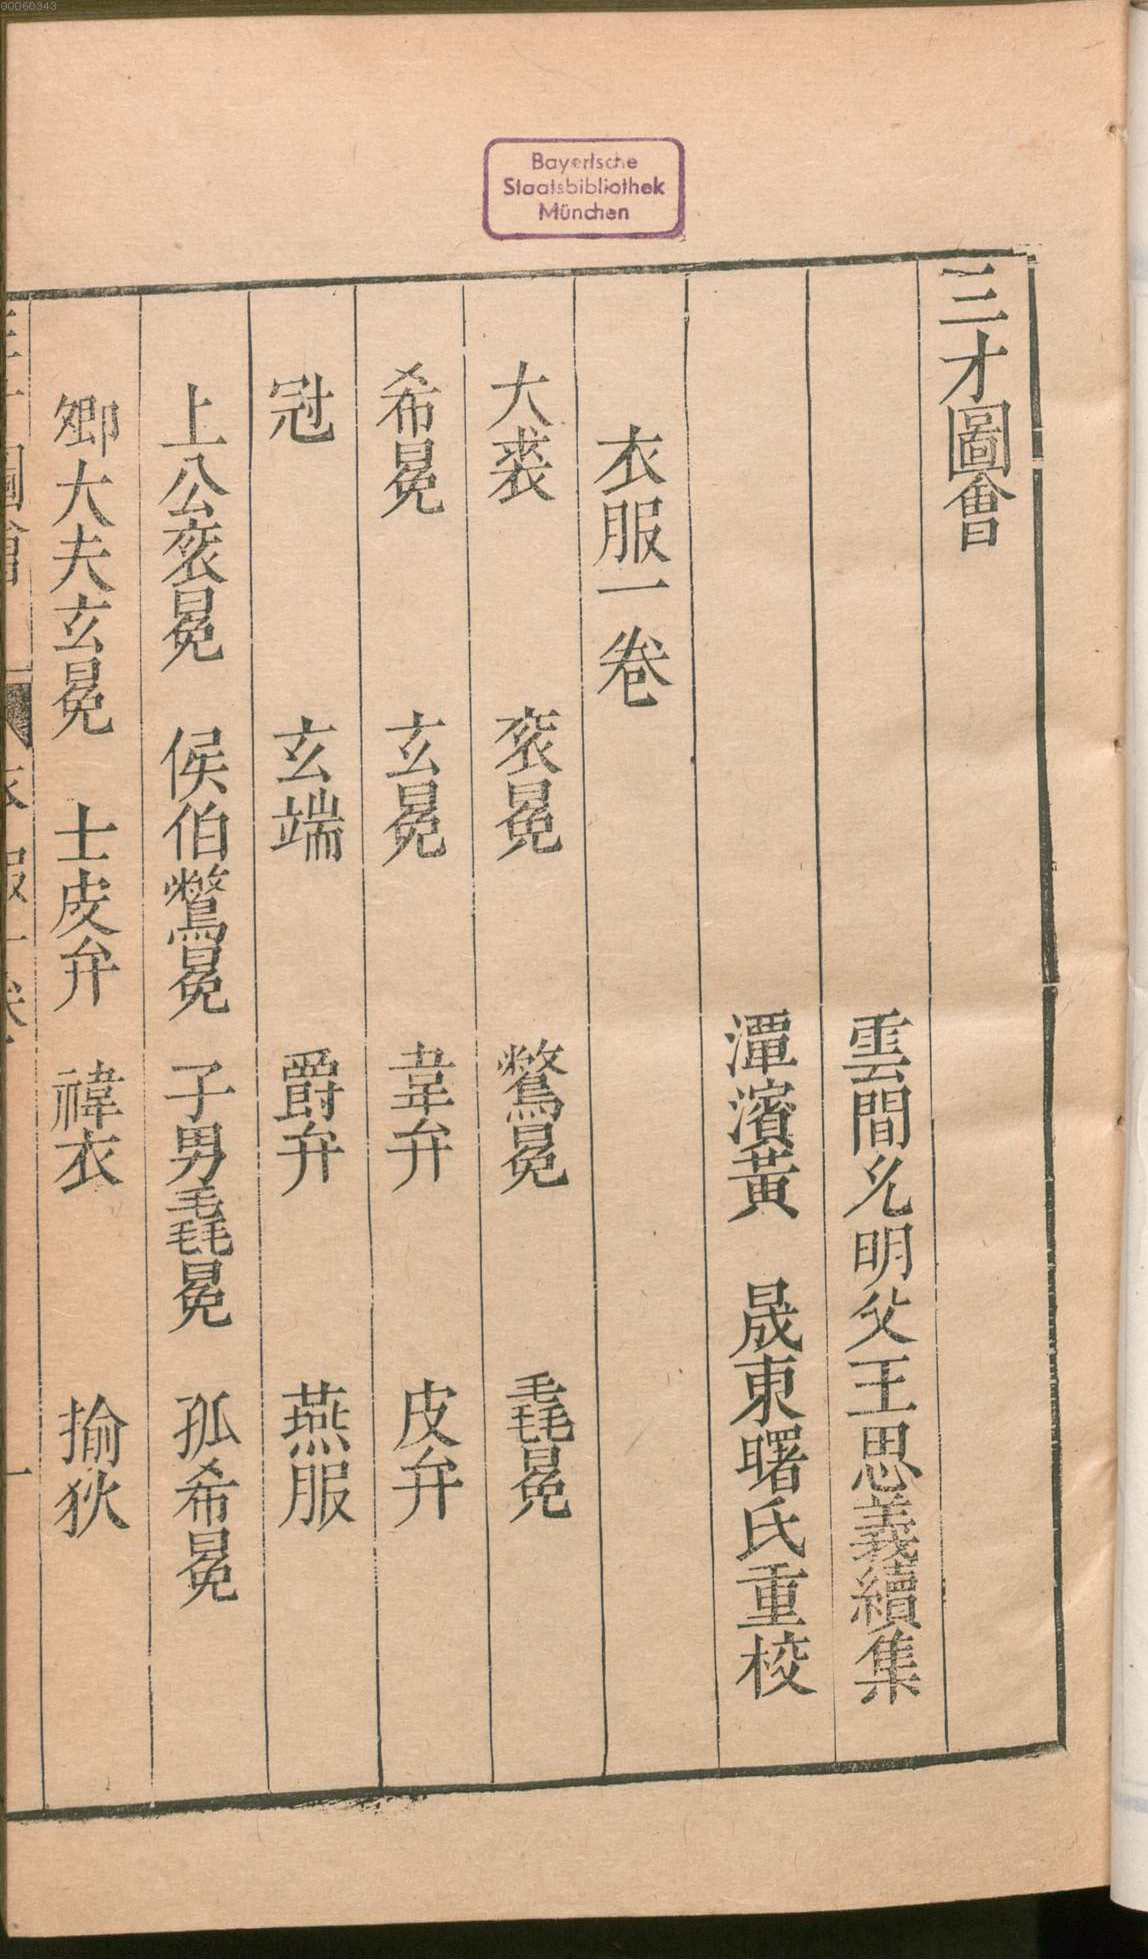 00060343
Bayerische
Staatsbibliothek
München
三才圖會
雲間允明父王思義續集
潭濱黃 晟東曙氏重校
衣服一卷
大裘 袞冕 鷩冕 毳冕
希冕 玄冕 韋弁 皮弁
冠 玄端 爵弁 燕服
上公袞冕 侯伯鷩冕 子男毳冕 孤希冕
卿大夫玄冕 士皮弁 褘衣 揄狄
三才圖會 衣服一卷 一